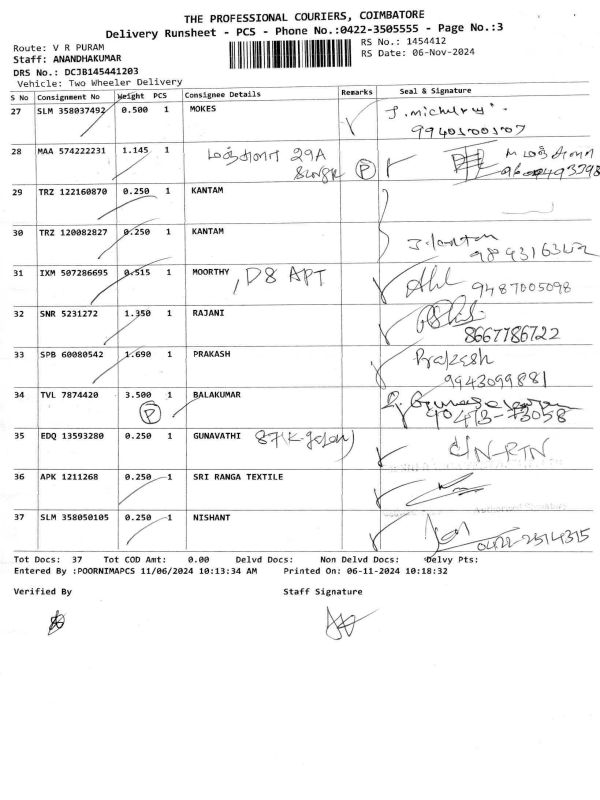 THE PROFESSIONAL COURIERS, COIMBATORE
Delivery Runsheet - PCS - Phone No.:0422-3505555 - Page No.:3
Route: V R PURAM
RS No.: 1454412
Staff: ANANDHAKUMAR
RS Date: 06-Nov-2024
DRS No.: DCJB145441203
Vehicle: Two Wheeler Delivery
S No Consignment No Weight PCS Consignee Details Remarks Seal & Signature
27 SLM 358037492 0.500 1 MOKES
28 MAA 574222231 1.145 1 29A P
29 TRZ 122160870 0.250 1 KANTAM
30 TRZ 120082827 0.250 1 KANTAM
31 IXM 507286695 0.515 1 MOORTHY , D8 APT
9487005098
32 SNR 5231272 1.350 1 RAJANI
8667786722
33 SPB 60080542 1.690 1 PRAKASH
9943099881
34 TVL 7874420 3.500 1 BALAKUMAR
P
35 EDQ 13593280 0.250 1 GUNAVATHI
36 APK 1211268 0.250 1 SRI RANGA TEXTILE
37 SLM 358050105 0.250 1 NISHANT
0422-2514315
Tot Docs: 37 Tot COD Amt: 0.00 Delvd Docs: Non Delvd Docs: Delvy Pts:
Entered By :POORNIMAPCS 11/06/2024 10:13:34 AM Printed On: 06-11-2024 10:18:32
Verified By Staff Signature